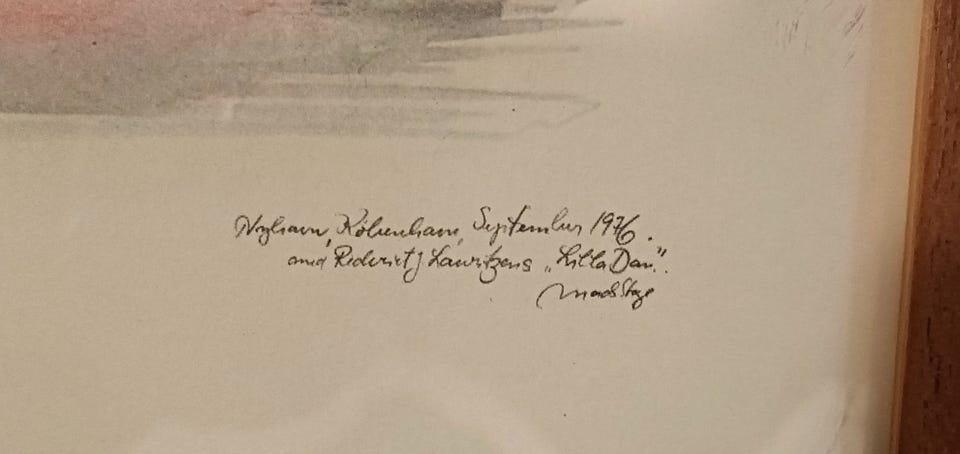 Nyhavn, København, September 1976.
med Rederiet J Lauritzens „Lilla Dan".
Mads Stage